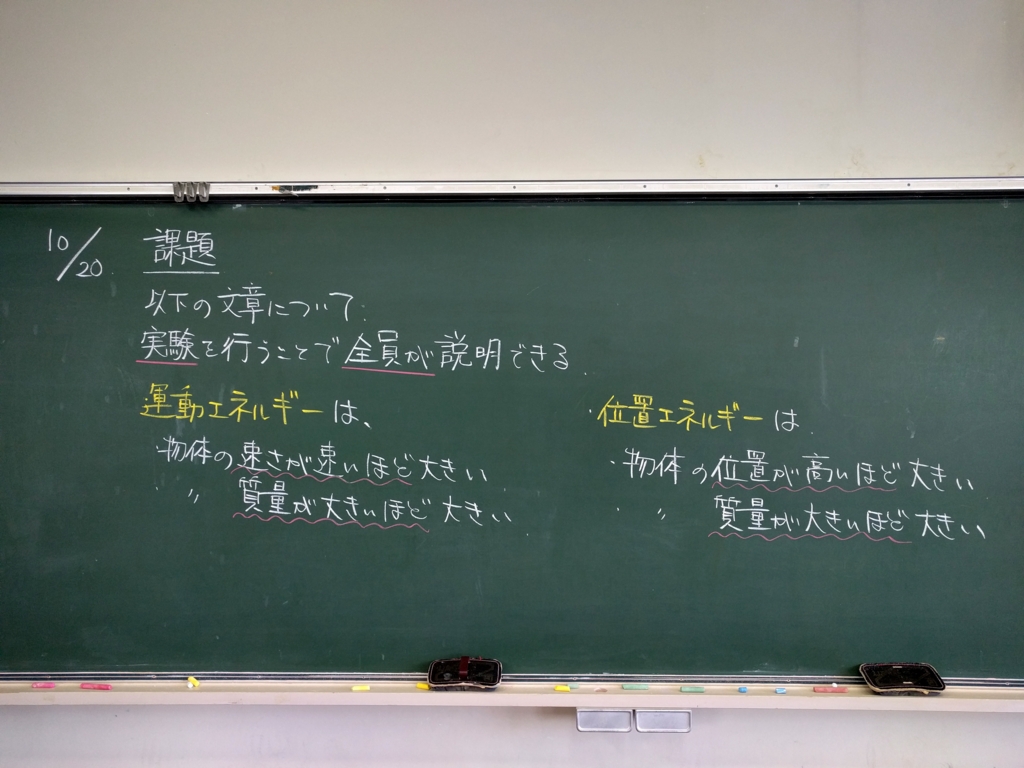 10/20 課題
以下の文章について、
実験を行うことで全員が説明できる。
運動エネルギーは、
・物体の速さが速いほど大きい
・ 〃 質量が大きいほど大きい
・位置エネルギーは
・物体の位置が高いほど大きい
・ 〃 質量が大きいほど大きい